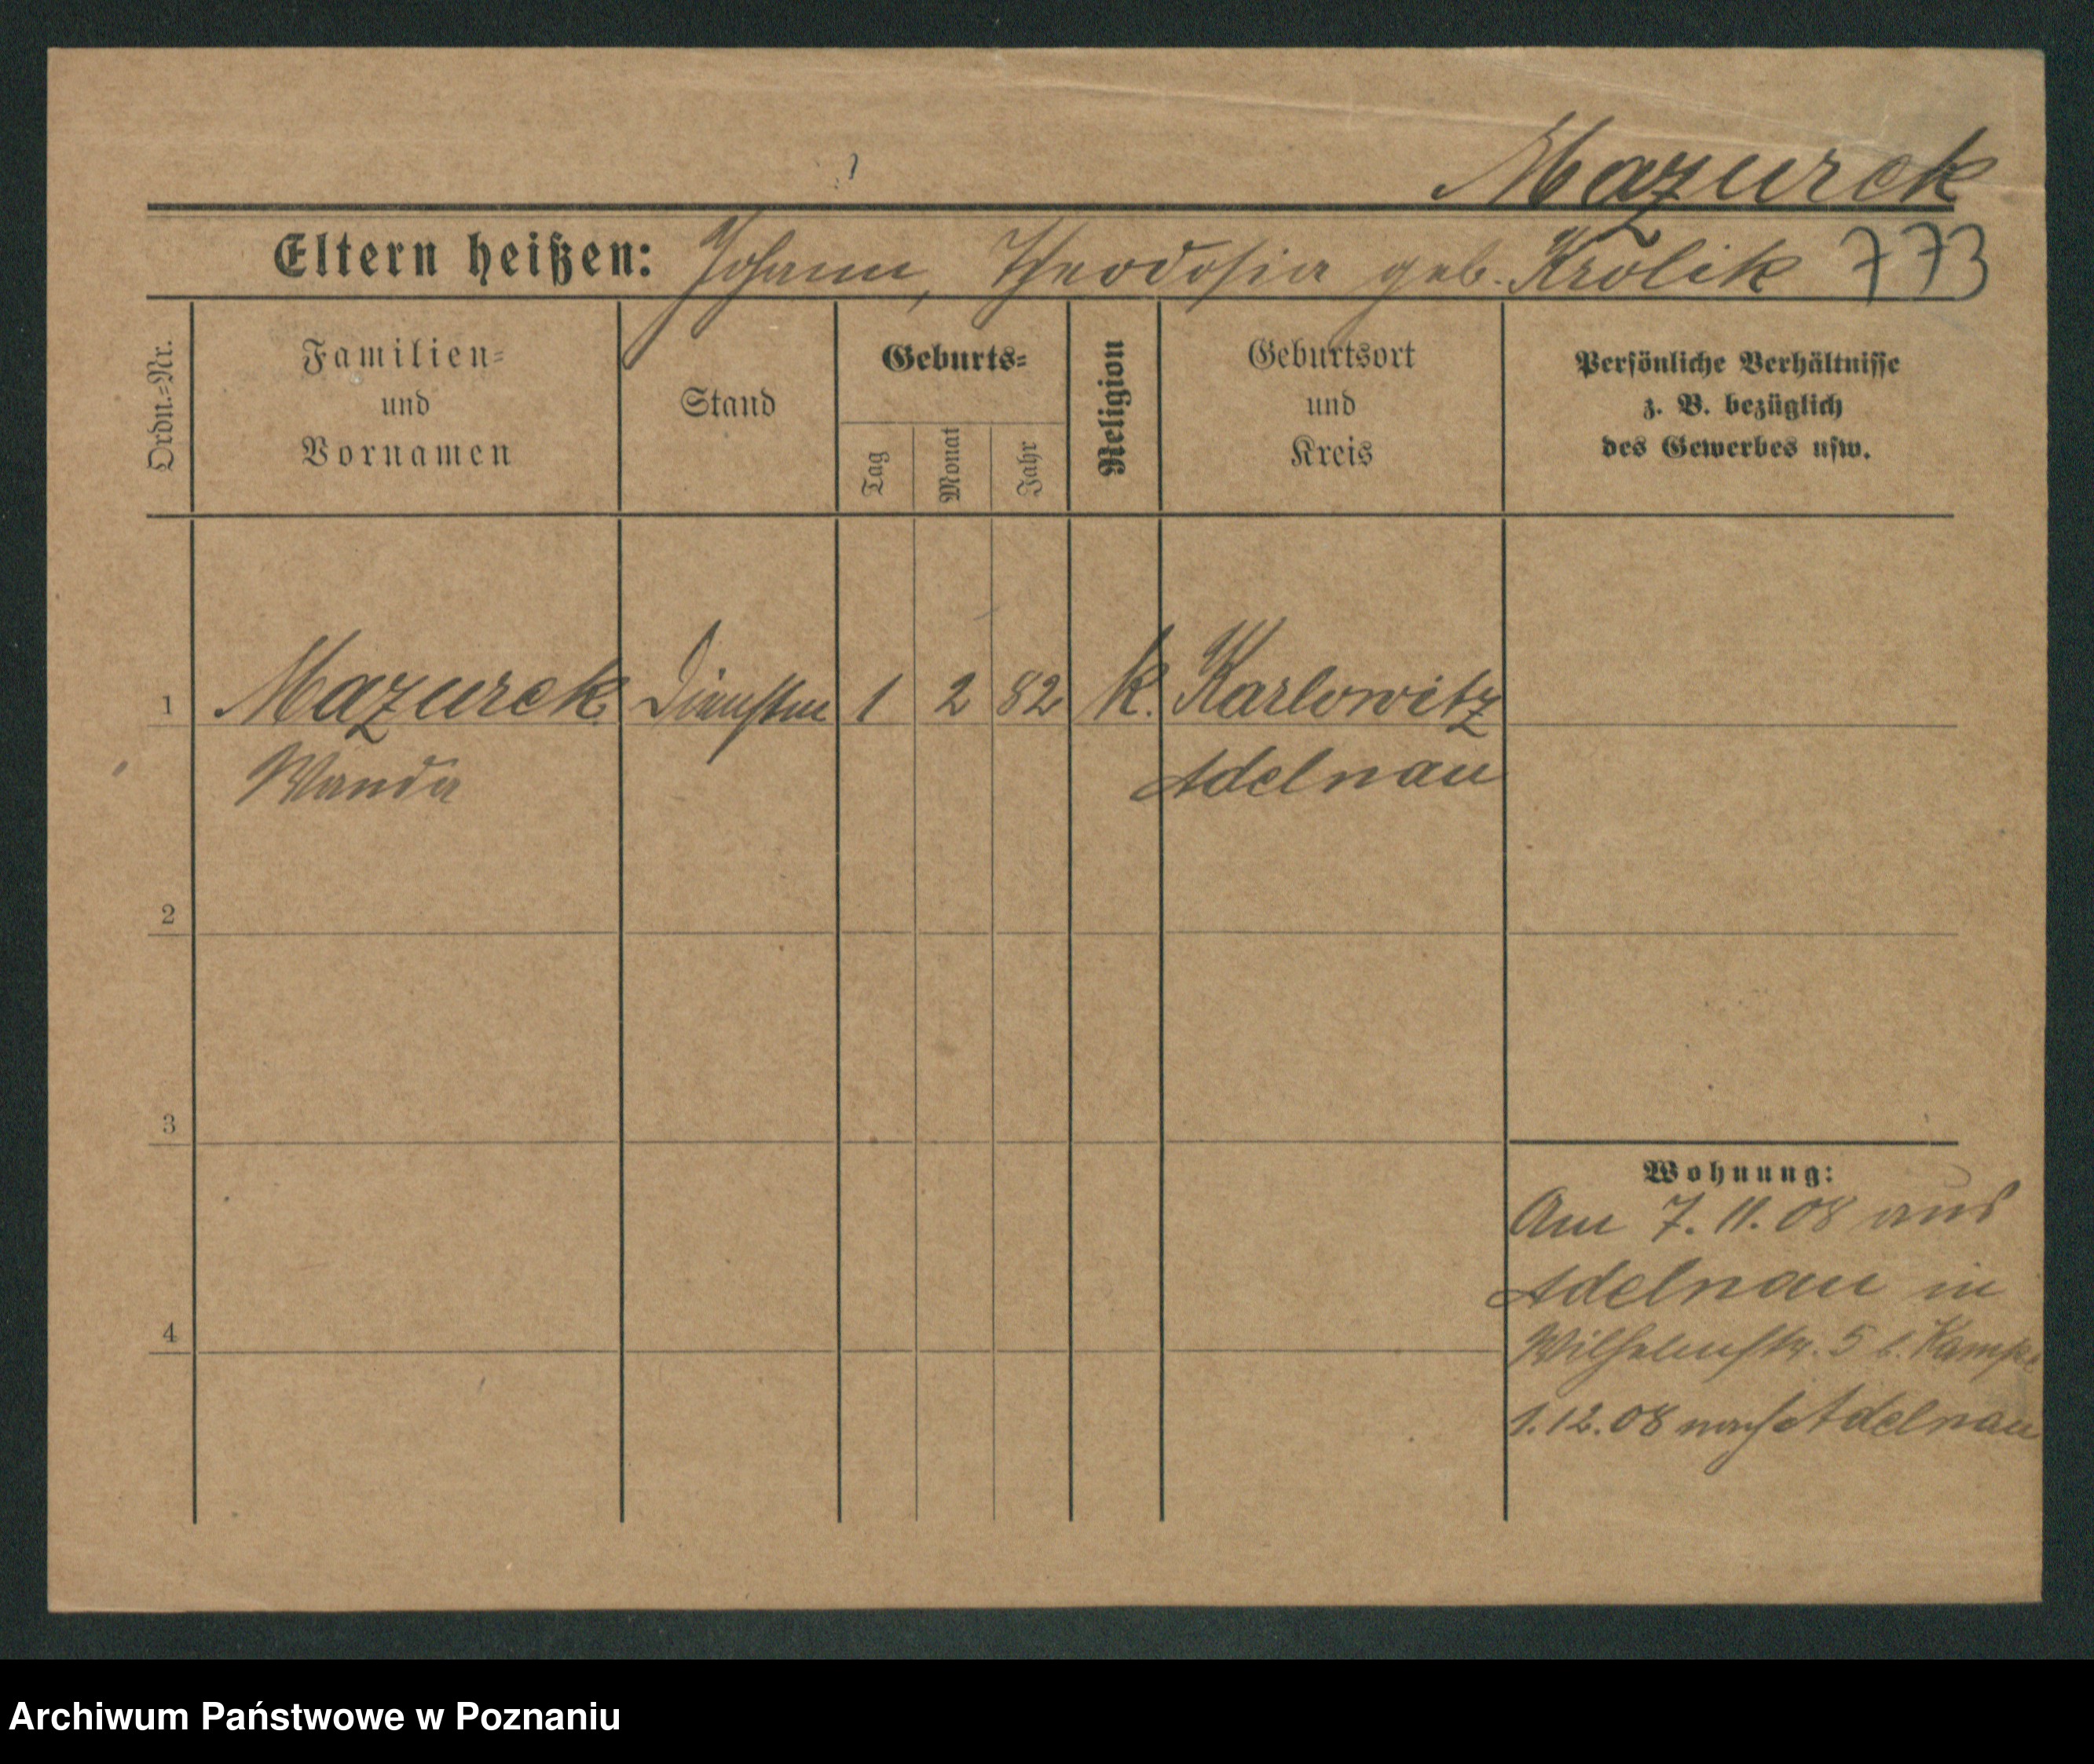 Mazurek
Eltern heißen: Johann, Theodosia geb. Krolik 773
Ordn.=Nr.
Familien=
und
Vornamen
Stand
Geburts=
Tag
Monat
Jahr
Religion
Geburtsort
und
Kreis
Persönliche Verhältnisse
z. B. bezüglich
des Gewerbes usw.
1 Mazurek 1 2 82 k. Karlowitz
Wanda Adelnau
2
3
4
Wohnung:
Am 7.11.08 aus
Adelnau in
Wilhelmstr. 5 b. Kampe
1.12.08 nach Adelnau
Archiwum Państwowe w Poznaniu